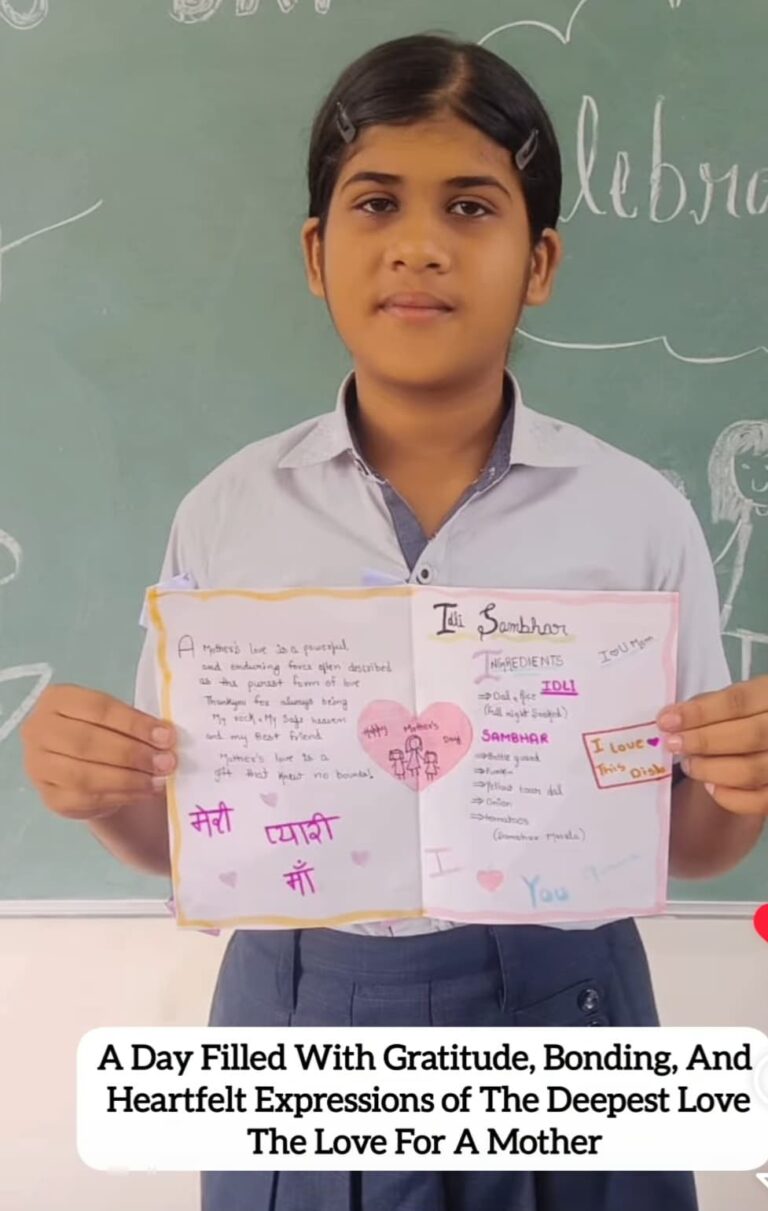 lebra
A Mother's love is a powerful,
and enduring force often described
as the purest form of love
Thankyou for always being
My rock, My Safe heaven
and my Best friend
Mother's love is a
gift that knows no bounds!
मेरी प्यारी
माँ
Happy Mother's Day
Idli Sambhar
INGREDIENTS
I ♡ U Mom
IDLI
⇒ Dal, Rice
(Full night Soaked)
SAMBHAR
⇒ Bottle guard
⇒ Yellow toor dal
⇒ Onion
⇒ tomatoes
(Sambhar Masala)
I Love ♥
This Dish
I ♥ You
A Day Filled With Gratitude, Bonding, And
Heartfelt Expressions of The Deepest Love
The Love For A Mother